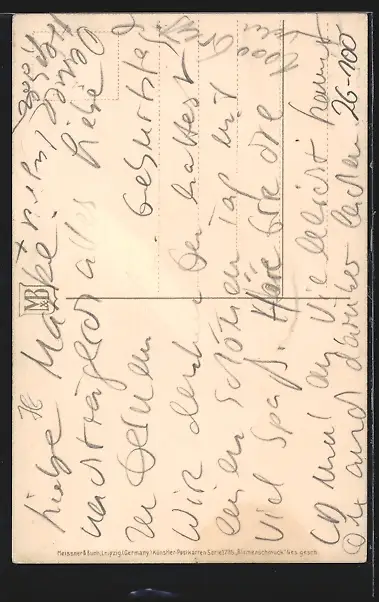 Liebe Maike!
nachträglich alles Liebe
zu Deinem Geburtstag
Wir denken Du hattest
einen schönen Tag mit
viel Spaß. Höre Dir die
CD mal an vielleicht kannst
Du auch darüber lachen.
26-100
M&B
Meissner & Buch, Leipzig (Germany) Künstler-Postkarten Serie "Blumenschmuck" Ges. gesch.